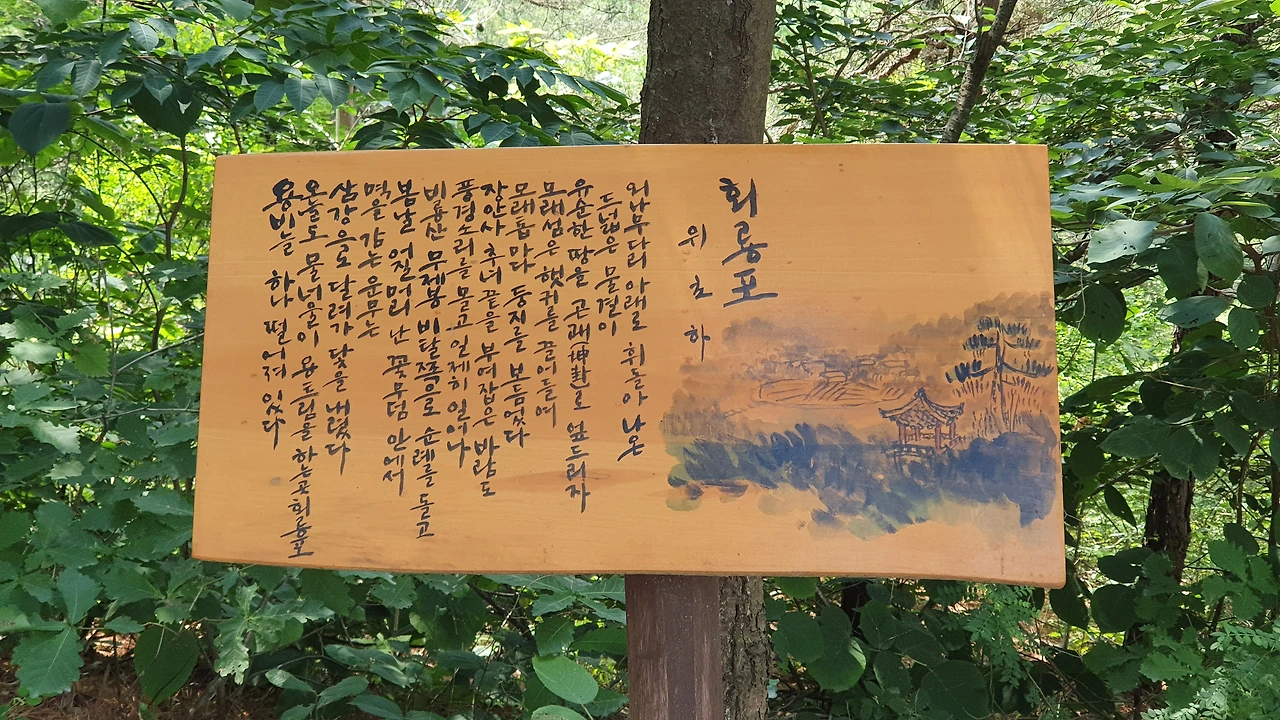 회룡포
위초하
외나무다리 아래로 휘돌아 나온
드넓은 물결이
유순한 땅을 곤괘(坤卦)로 엎드리자
모래섬은 햇귀를 끌어들여
모래톱마다 둥지를 보듬었다
장안사 추녀 끝을 부여잡은 바람도
풍경소리를 몰고 언제히 일어나
비룡산 무제봉 비탈쪽으로 순례를 돌고
봄날 얼질머리 난 꽃무덤 안에서
멱을 감는 운무는
삼강으로 달려가 닻을 내렸다
오늘도 물너울이 용트림을 하는곳 회룡포
용비늘 하나 떨어져 있다